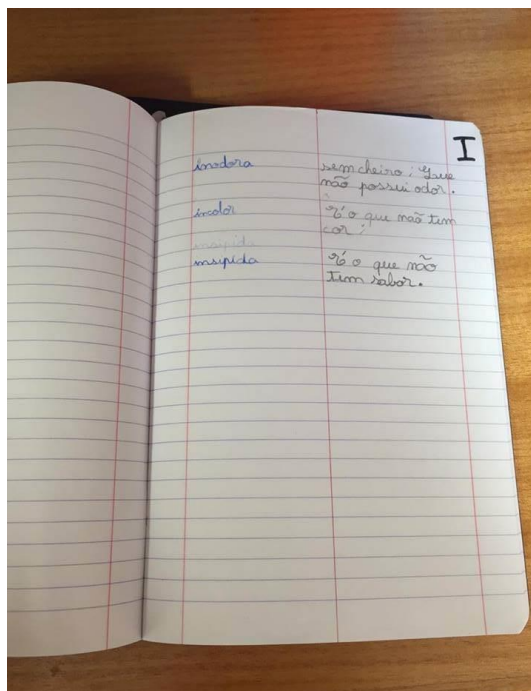 I
inodora sem cheiro; Que
não possui odor.
incolor É o que não tem
cor;
insipida
insipida É o que não
tem sabor.